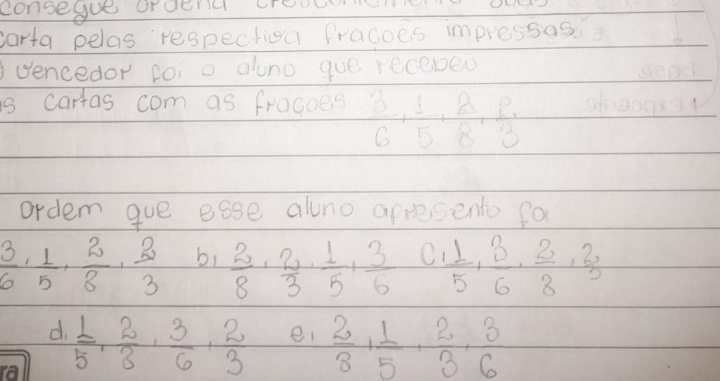 consegue ordena crescentemente suas
carta pelas respectiva frações impressas.
vencedor foi o aluno que recebeu
s cartas com as frações 3/6, 1/5, 2/8, 2/3
ordem que esse aluno apresento foi
3/6, 1/5, 2/8, 2/3 b, 2/8, 2/3, 1/5, 3/6 C, 1/5, 3/6, 2/8, 2/3
d, 1/5, 2/8, 3/6, 2/3 e, 2/8, 1/5, 2/3, 3/6
ra